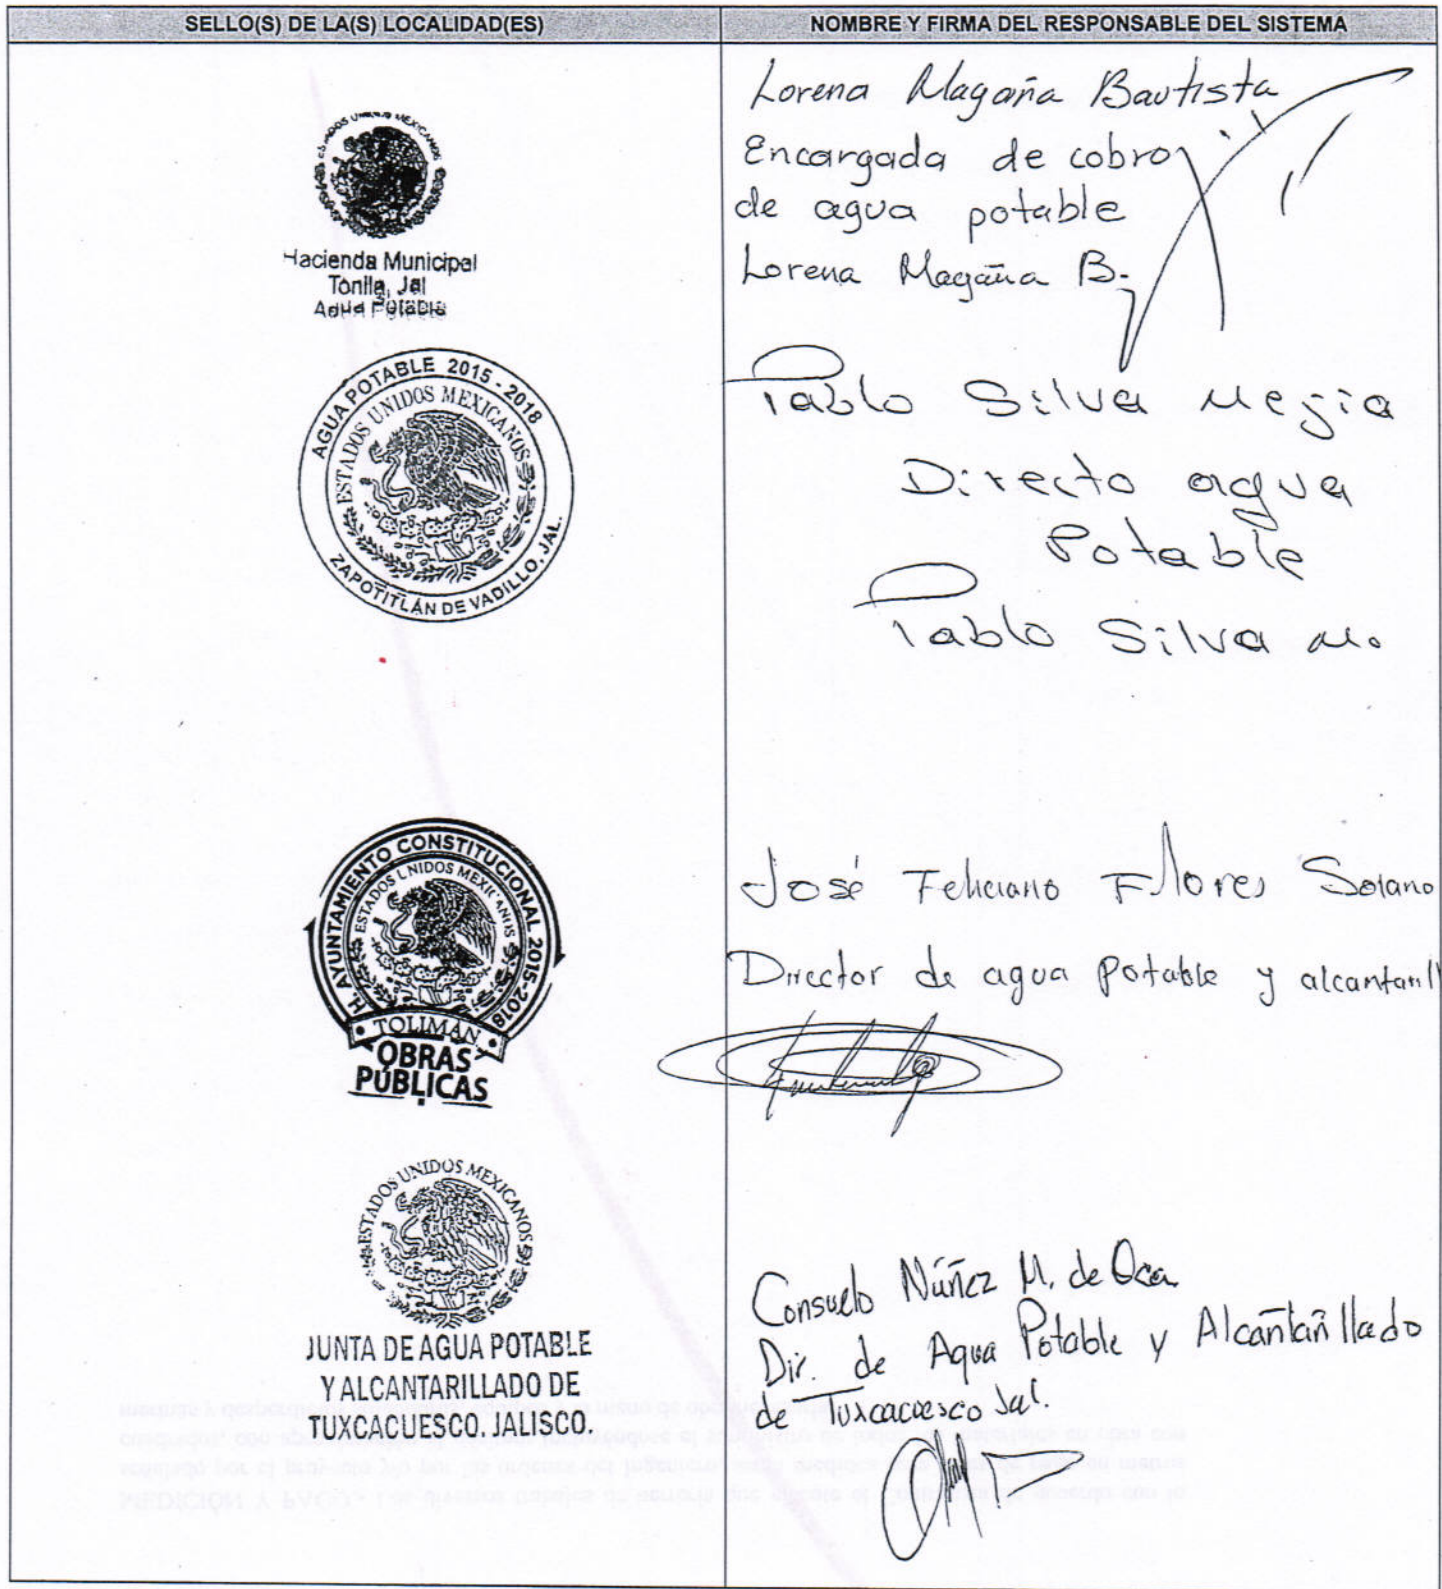 SELLO(S) DE LA(S) LOCALIDAD(ES)
NOMBRE Y FIRMA DEL RESPONSABLE DEL SISTEMA
ESTADOS UNIDOS MEXICANOS
Hacienda Municipal
Tonila, Jal
Agua Potable
Lorena Magaña Bautista
Encargada de cobro
de agua potable
Lorena Magaña B.
AGUA POTABLE 2015 - 2018
ESTADOS UNIDOS MEXICANOS
ZAPOTITLÁN DE VADILLO, JAL.
Pablo Silva Mejia
Directo agua
Potable
Pablo Silva M.
H. AYUNTAMIENTO CONSTITUCIONAL 2015-2018
ESTADOS UNIDOS MEXICANOS
TOLIMÁN
OBRAS
PÚBLICAS
José Feliciano Flores Solano
Director de agua Potable y alcantarill
ESTADOS UNIDOS MEXICANOS
JUNTA DE AGUA POTABLE
Y ALCANTARILLADO DE
TUXCACUESCO. JALISCO.
Consuelo Núñez M. de Oca
Dir. de Agua Potable y Alcantarillado
de Tuxcacuesco Jal.